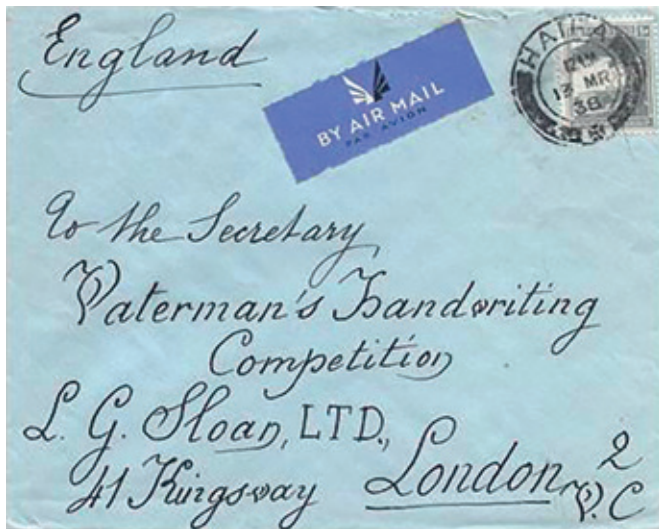 England
BY AIR MAIL
PAR AVION
HAIFA
13 MR
38
To the Secretary
Waterman's Handwriting
Competition
L. G. Sloan, LTD.,
41 Kingsway London W.C 2